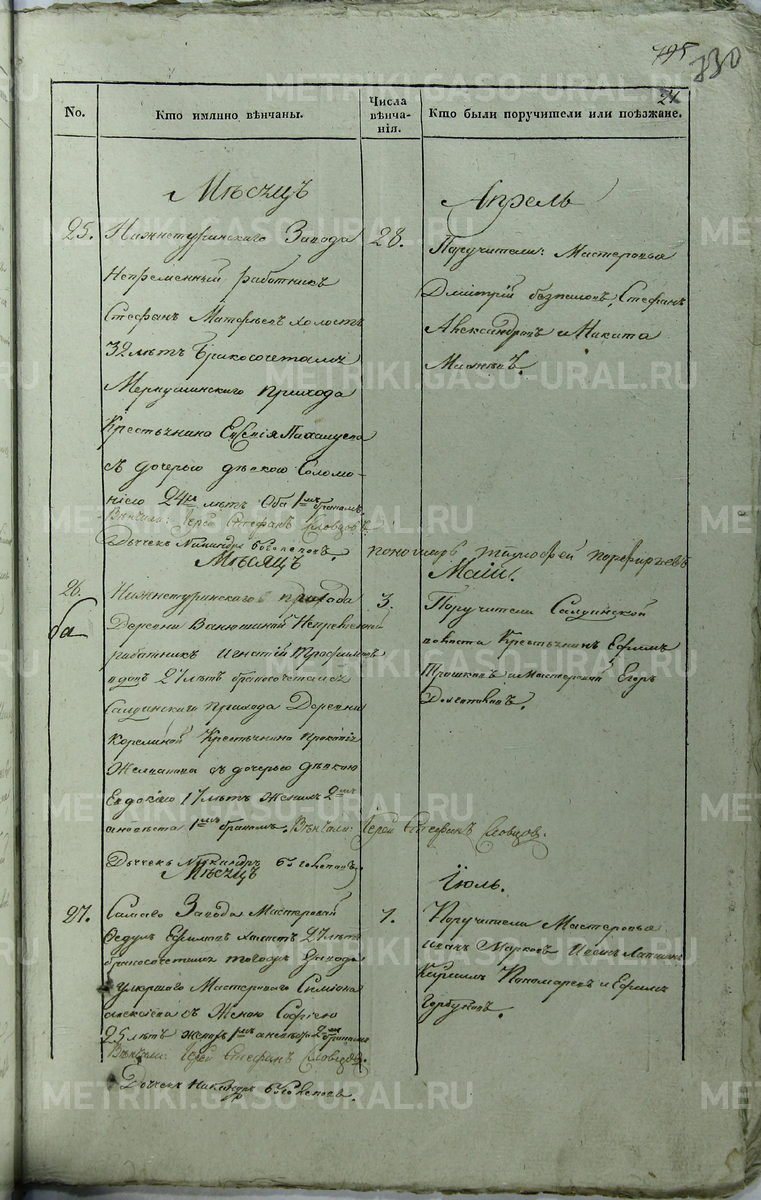 195
830
24
No. Кто имянно вѣнчаны. Числа вѣнчанія. Кто были поручители или поѣзжане.
Мѣсяцъ Апрель
25. Нижнетуринскаго Завода
Непременный работникъ
Стефанъ холостъ
32 лѣтъ бракосочетался
Меркушинскаго прихода
Крестьянина Евсенія
съ дочерью дѣвкою Соломо-
ніею 24хъ лѣтъ Оба 1мъ бракомъ
Вѣнчали: Іерей Стефанъ Словцовъ.
Дьячекъ Никандръ
пономарь тимофей порфирьевъ
28.
Поручители: Мастеровыя
Дмитрій безпаловъ, Стефанъ
Александровъ и Никита
Мѣсяцъ Маій.
26. Нижнетуринскаго прихода
ба
Деревни Ванюшиной Непременной
работникъ Игнатій Трофимовъ
вдовъ 27 лѣтъ бракосочетался
Салдинскаго прихода Деревни
Корелиной Крестьянина Прокопія
съ дочерью дѣвкою
Евдокіею 17 лѣтъ Женихъ 2мъ
а невѣста 1мъ бракомъ. Вѣнчали: Іерей Стефанъ Словцов.
Дьячекъ Никандръ
3.
Поручители Салдинской
волости Крестьянинъ Ефимъ
и Мастеровой Егоръ
Мѣсяцъ Іюль.
27. Самаго Завода Мастеровый
Федулъ Ефимовъ холостъ 27 лѣтъ
бракосочетался тогожъ Завода
умершаго Мастероваго Симіона
Алексѣева съ Женою Софіею
25 лѣтъ женихъ 1мъ а невѣста 2мъ бракомъ
Вѣнчали: Іерей Стефанъ Словцов.
Дьячекъ Никандръ
1.
Поручители Мастеровыя
иванъ Марковъ Иванъ Лапшинъ
Кирилъ Пономаревъ и Ефимъ
Горбуновъ.
METRIKI.GASO-URAL.RU